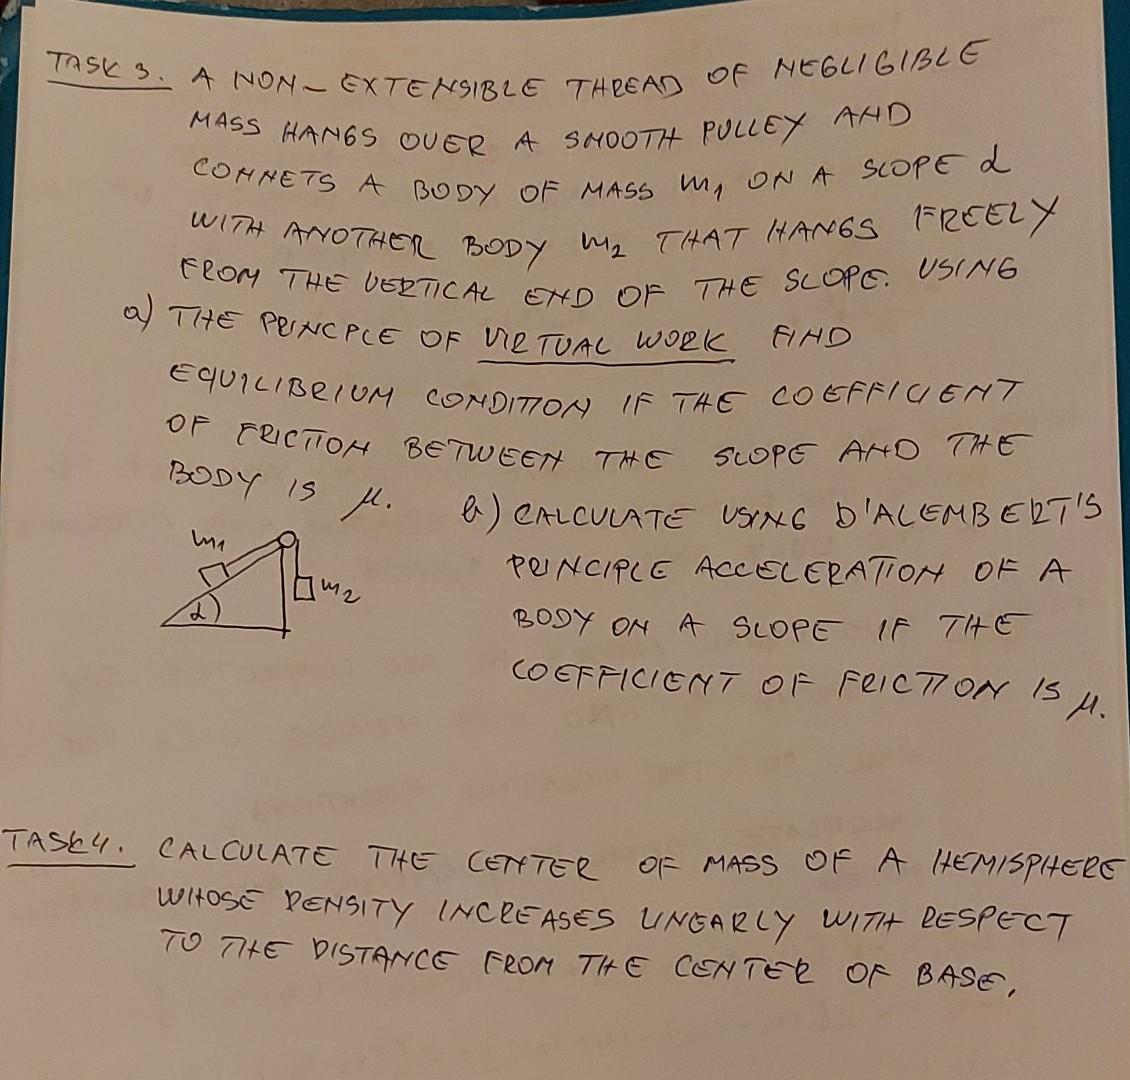 TASK 3. A NON-EXTENSIBLE THREAD OF NEGLIGIBLE
MASS HANGS OVER A SMOOTH PULLEY AND
CONNETS A BODY OF MASS m₁ ON A SLOPE α
WITH ANOTHER BODY m₂ THAT HANGS FREELY
FROM THE VERTICAL END OF THE SLOPE. USING
a) THE PRINCPLE OF VIRTUAL WORK FIND
EQUILIBRIUM CONDITION IF THE COEFFICIENT
OF FRICTION BETWEEN THE SLOPE AND THE
BODY IS μ.
b) CALCULATE USING D'ALEMBERT'S
PRINCIPLE ACCELERATION OF A
BODY ON A SLOPE IF THE
COEFFICIENT OF FRICTION IS μ.
m₁
m₂
α
TASK 4. CALCULATE THE CENTER OF MASS OF A HEMISPHERE
WHOSE DENSITY INCREASES LINEARLY WITH RESPECT
TO THE DISTANCE FROM THE CENTER OF BASE.